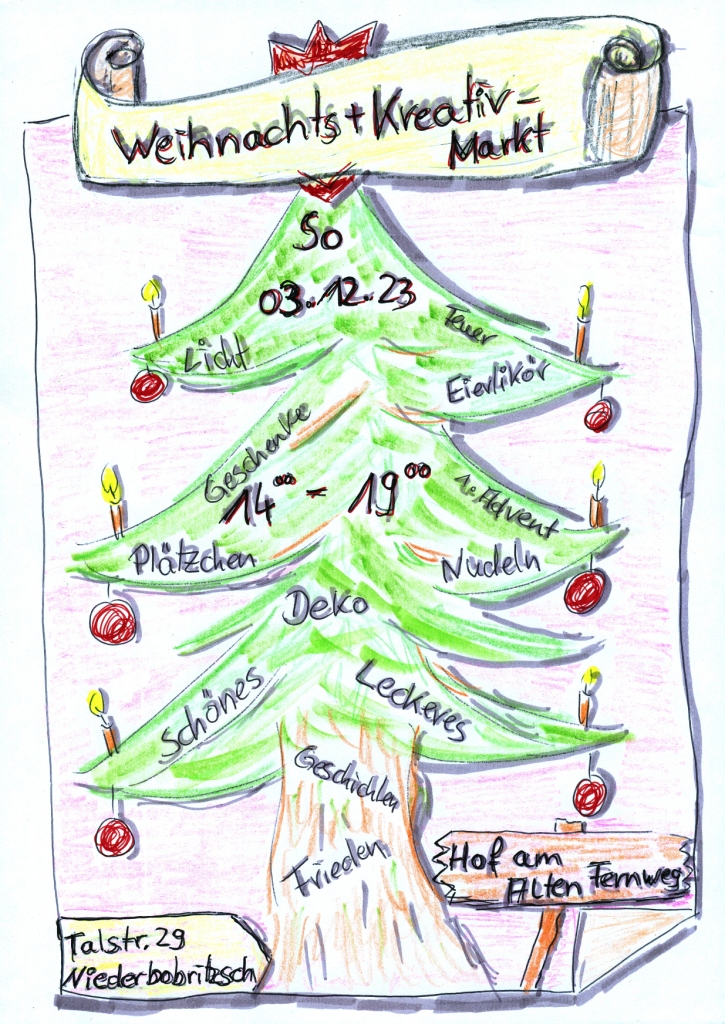 Weihnachts + Kreativ-
Markt
So
03.12.23
Licht
Feuer
Eierlikör
Geschenke
14°° - 19°°
1. Advent
Plätzchen
Nudeln
Deko
Schönes
Leckeres
Geschichten
Frieden
Hof am
Alten Fernweg
Talstr. 29
Niederbobritzsch